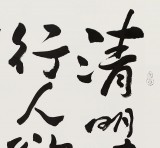 清明
行人欲